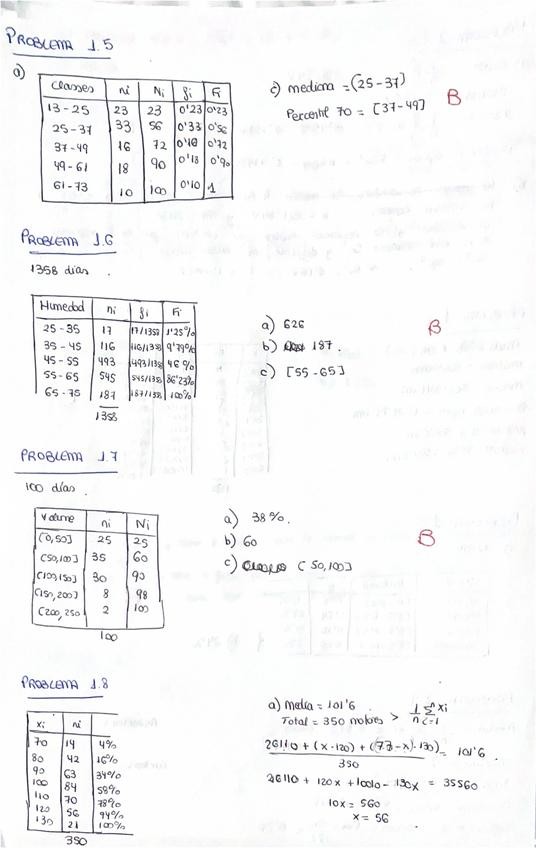 PROBLEMA 1.5
a)
Classes ni Ni fi Fi
13-25 23 23 0'23 0'23
25-37 33 56 0'33 0'56
37-49 16 72 0'16 0'72
49-61 18 90 0'18 0'90
61-73 10 100 0'10 1
c) mediana = (25-37]
Percentil 70 = [37-49]
B
PROBLEMA 1.6
1358 días.
Humedad ni fi Fi
25-35 17 17/1358 1'25%
35-45 116 116/1358 9'79%
45-55 493 493/1358 46%
55-65 545 545/1358 86'23%
65-75 187 187/1358 100%
1358
a) 626
b) 187.
c) [55-65]
B
PROBLEMA 1.7
100 días.
Volume ni Ni
(0,50] 25 25
(50,100] 35 60
(100,150] 30 90
(150,200] 8 98
(200,250 2 100
100
a) 38%.
b) 60
c) (50,100]
B
PROBLEMA 1.8
xi ni
70 14 4%
80 42 16%
90 63 34%
100 84 58%
110 70 78%
120 56 94%
130 21 100%
350
a) Media = 101'6
Total = 350 motores > 1/n Σ xi n i=1
26110 + (x·120) + (77-x)·130) / 350 = 101'6
26110 + 120x + 10010 - 130x = 35560
10x = 560
x = 56